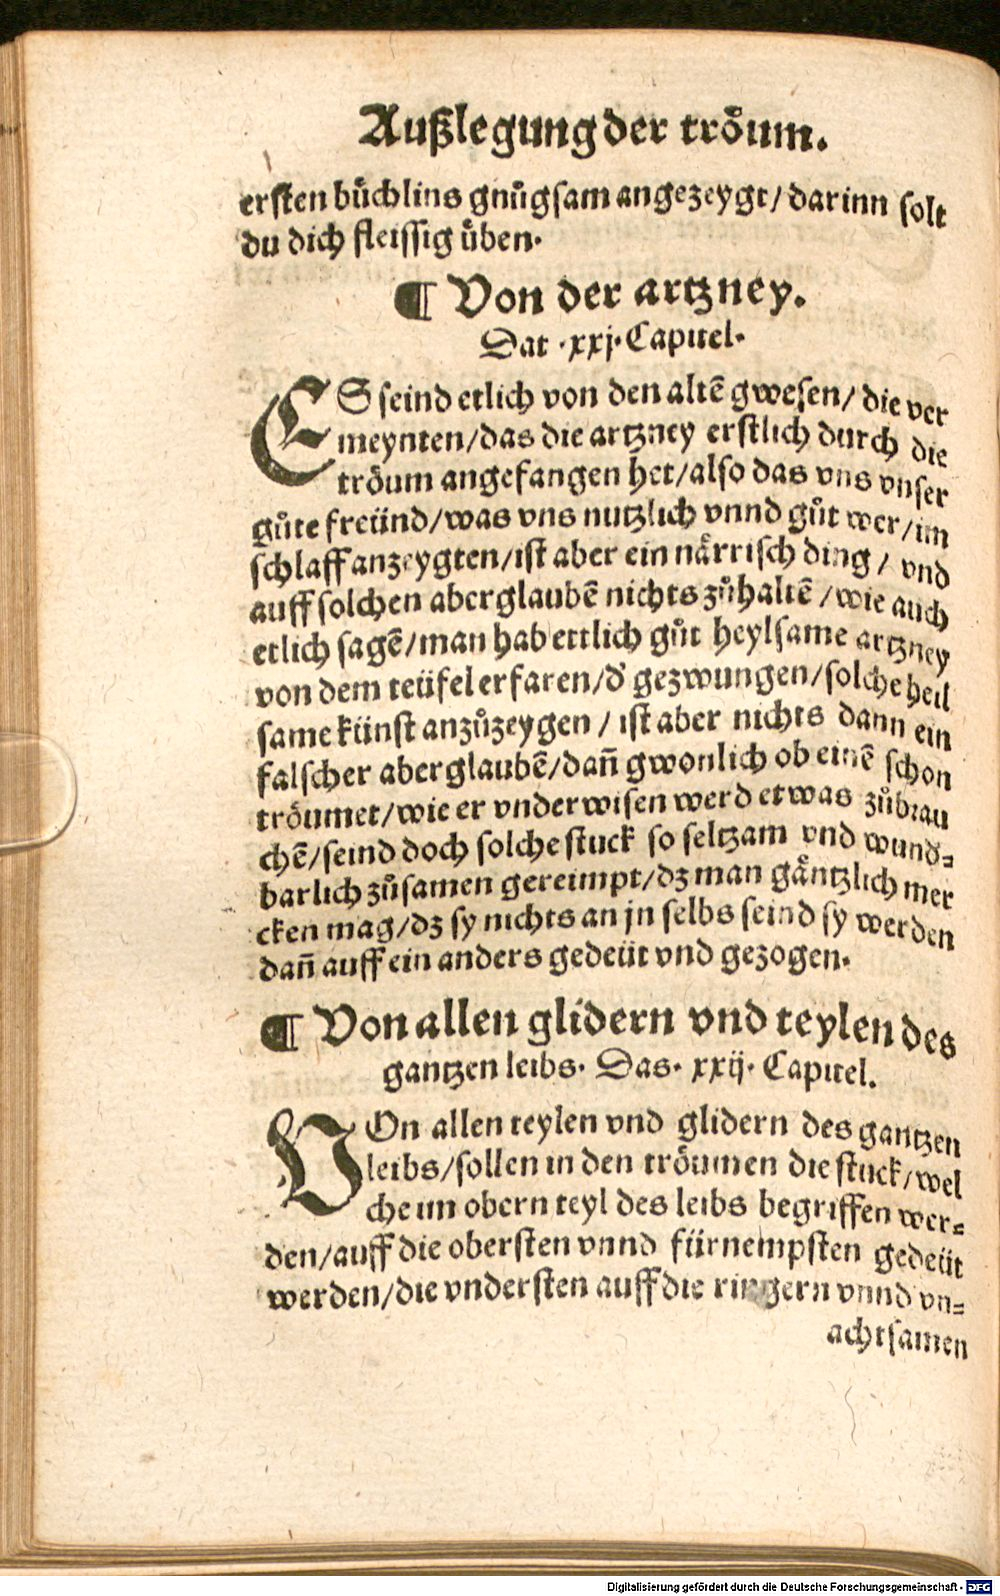 Außlegung der tröum.
ersten büchlins gnůgsam angezeygt/ darinn solt
du dich fleissig üben.
¶ Von der artzney.
Dat .xxj. Capitel.
ES seind etlich von den altẽ gwesen/ die ver
meynten/das die artzney erstlich durch die
tröum angefangen het/also das vns vnser
gůte freünd/was vns nutzlich vnnd gůt wer/im
schlaff anzeygten/ist aber ein närrisch ding / vnd
auff solchen aberglaubẽ nichts zůhaltẽ /wie auch
etlich sagẽ/man hab ettlich gůt heylsame artzney
von dem teüfel erfaren/d' gezwungen/solche heil
same künst anzůzeygen / ist aber nichts dann ein
falscher aberglaubẽ/dañ gwonlich ob einẽ schon
tröumet/wie er vnderwisen werd etwas zůbrau
chẽ/seind doch solche stuck so seltzam vnd wund⸗
barlich zůsamen gereimpt/dz man gäntzlich mer
cken mag/dz sy nichts an jn selbs seind sy werden
dañ auff ein anders gedeüt vnd gezogen.
¶ Von allen glidern vnd teylen des
gantzen leibs. Das. xxij. Capitel.
VOn allen teylen vnd glidern des gantzen
leibs/sollen in den tröumen die stuck/wel
che im obern teyl des leibs begriffen wer⸗
den/auff die obersten vnnd fürnempsten gedeüt
werden/die vndersten auff die ringern vnnd vn⸗
achtsamen
Digitalisierung gefördert durch die Deutsche Forschungsgemeinschaft - DFG